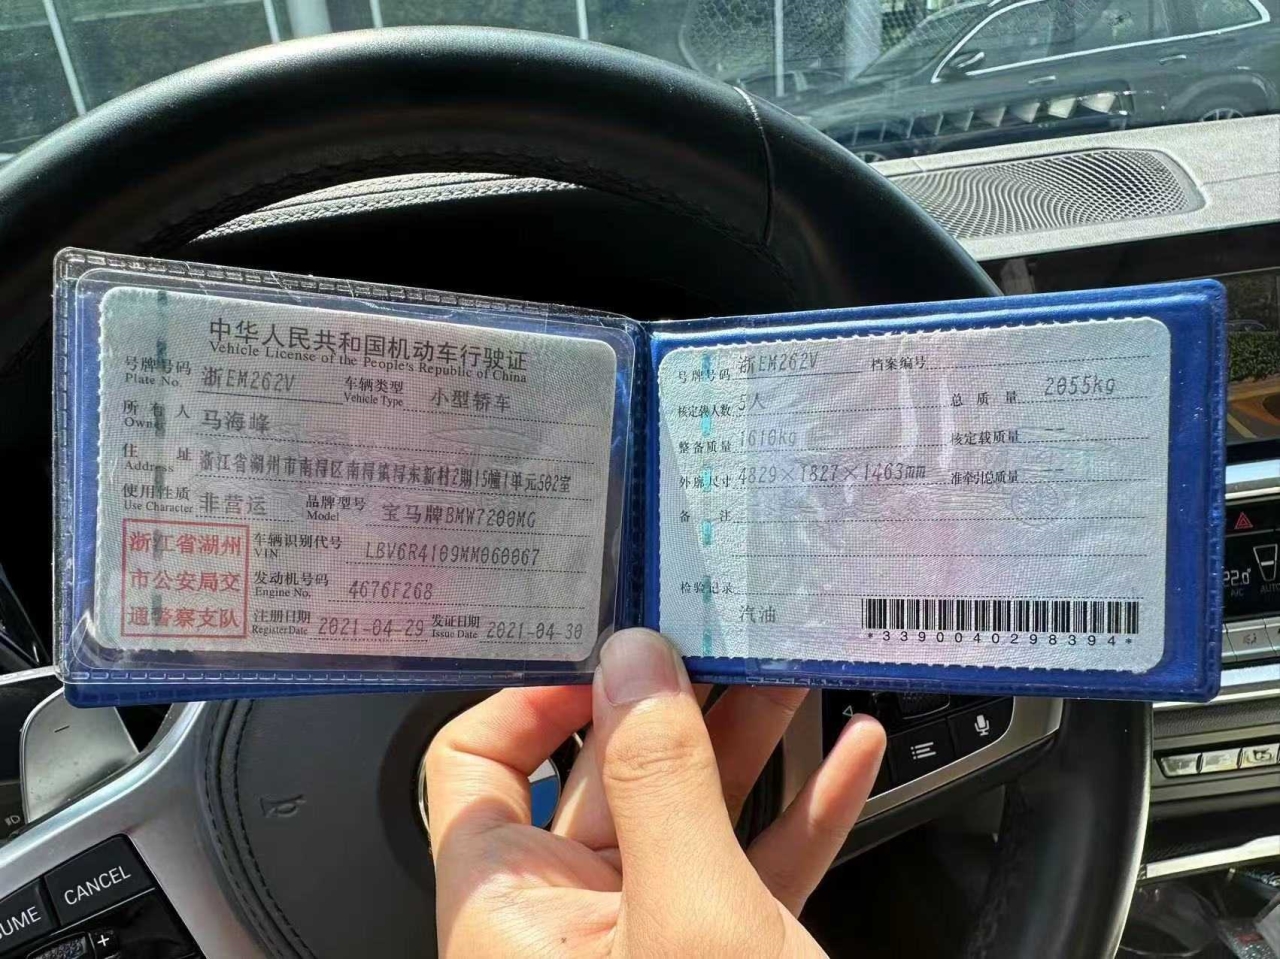 中华人民共和国机动车行驶证
Vehicle License of the People's Republic of China
号牌号码 浙EM262V 车辆类型 小型轿车
Plate No. Vehicle Type
所有人 马海峰
Owner
住址 浙江省湖州市南得区南得镇得东新村2期15幢1单元502室
Address
使用性质 非营运 品牌型号 宝马牌BMW7200MG
Use Character Model
浙江省湖州
市公安局交
通警察支队
车辆识别代号 LBV6R4109MM060067
VIN
发动机号码 4676F268
Engine No.
注册日期 2021-04-29 发证日期 2021-04-30
Register Date Issue Date
号牌号码 浙EM262V 档案编号
核定载人数 5人 总质量 2055kg
整备质量 1610kg 核定载质量 --
外廓尺寸 4829×1827×1463mm 准牵引总质量 --
备注
检验记录
汽油
*3390040298394*
CANCEL
UME
+
22.0°
A/C